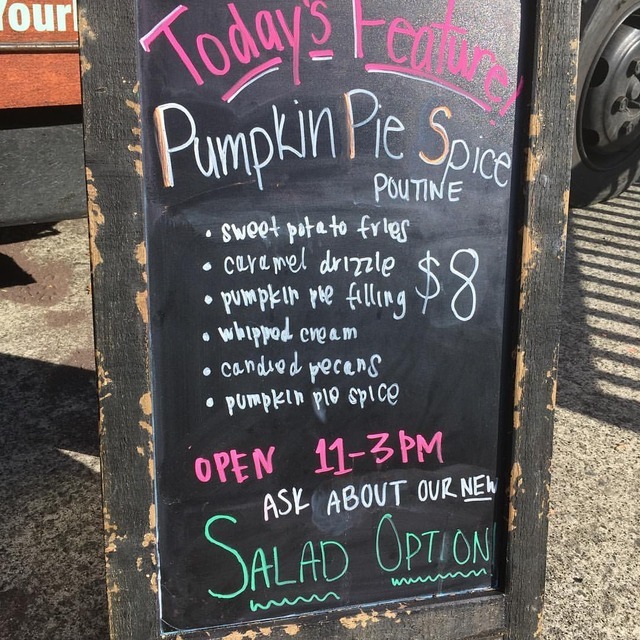 Your
Today's Feature!
Pumpkin Pie Spice
POUTINE
• sweet potato fries
• caramel drizzle
• pumpkin pie filling
$8
• whipped cream
• candied pecans
• pumpkin pie spice
OPEN 11-3PM
ASK ABOUT OUR NEW
SALAD OPTION